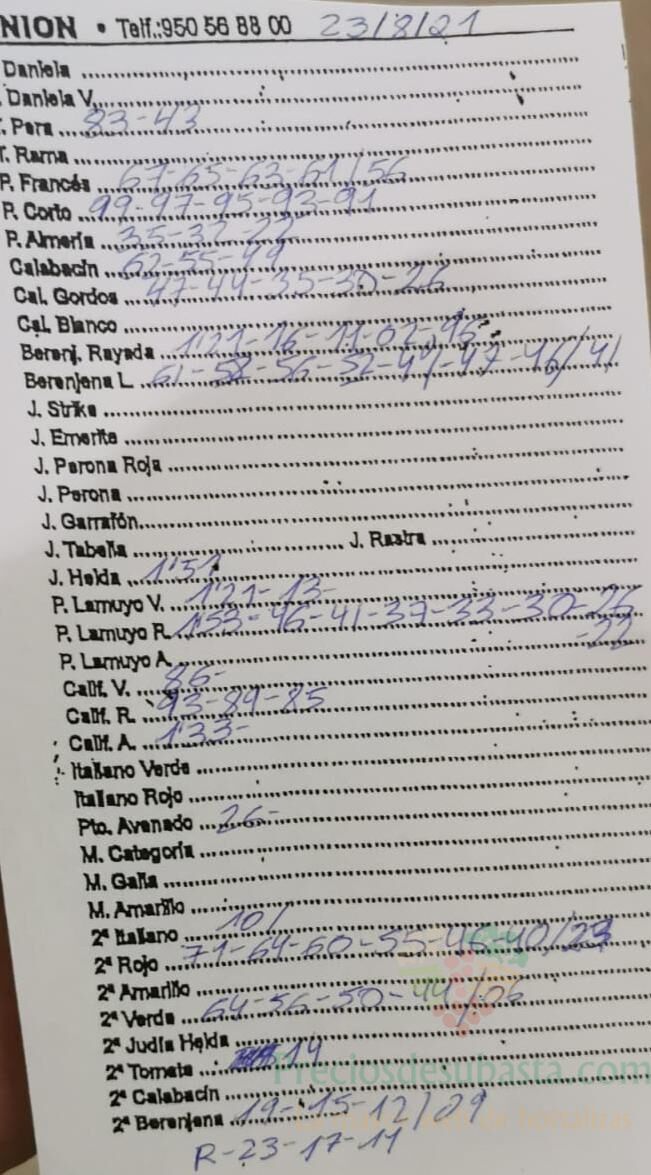 NION • Telf.:950 56 88 00 23/8/21
Daniela
Daniela V.
T. Pera 83-43
T. Rama
P. Francés 67-65-63-61/56
P. Corto 99-97-95-93-91
P. Almería 35-32-22
Calabacín 62-55-49
Cal. Gordos 47-44-35-30-26
Cal. Blanco
Berenj. Rayada 1'21-16-11-02-96
Berenjena L. 61-58-56-52-49-47-46/41
J. Strike
J. Emerite
J. Perona Roja
J. Perona
J. Garrafón
J. Tabella J. Rastra
J. Helda 1'51
P. Lamuyo V. 1'21-13-
P. Lamuyo R. 1'53-46-41-37-33-30-26
-22
P. Lamuyo A.
Calif. V. 86-
Calif. R. 93-89-85
Calif. A. 1'33-
Italiano Verde
Italiano Rojo
Pto. Avenado 26-
M. Categoría
M. Galia
M. Amarillo
2ª Italiano 10/
2ª Rojo 71-64-60-55-46-40/23
2ª Amarillo
2ª Verde 64-56-50-44/06
2ª Judía Helda
2ª Tomate 14
Preciosdesubasta.com
2ª Calabacín
2ª Berenjena 19-15-12/09
R-23-17-11